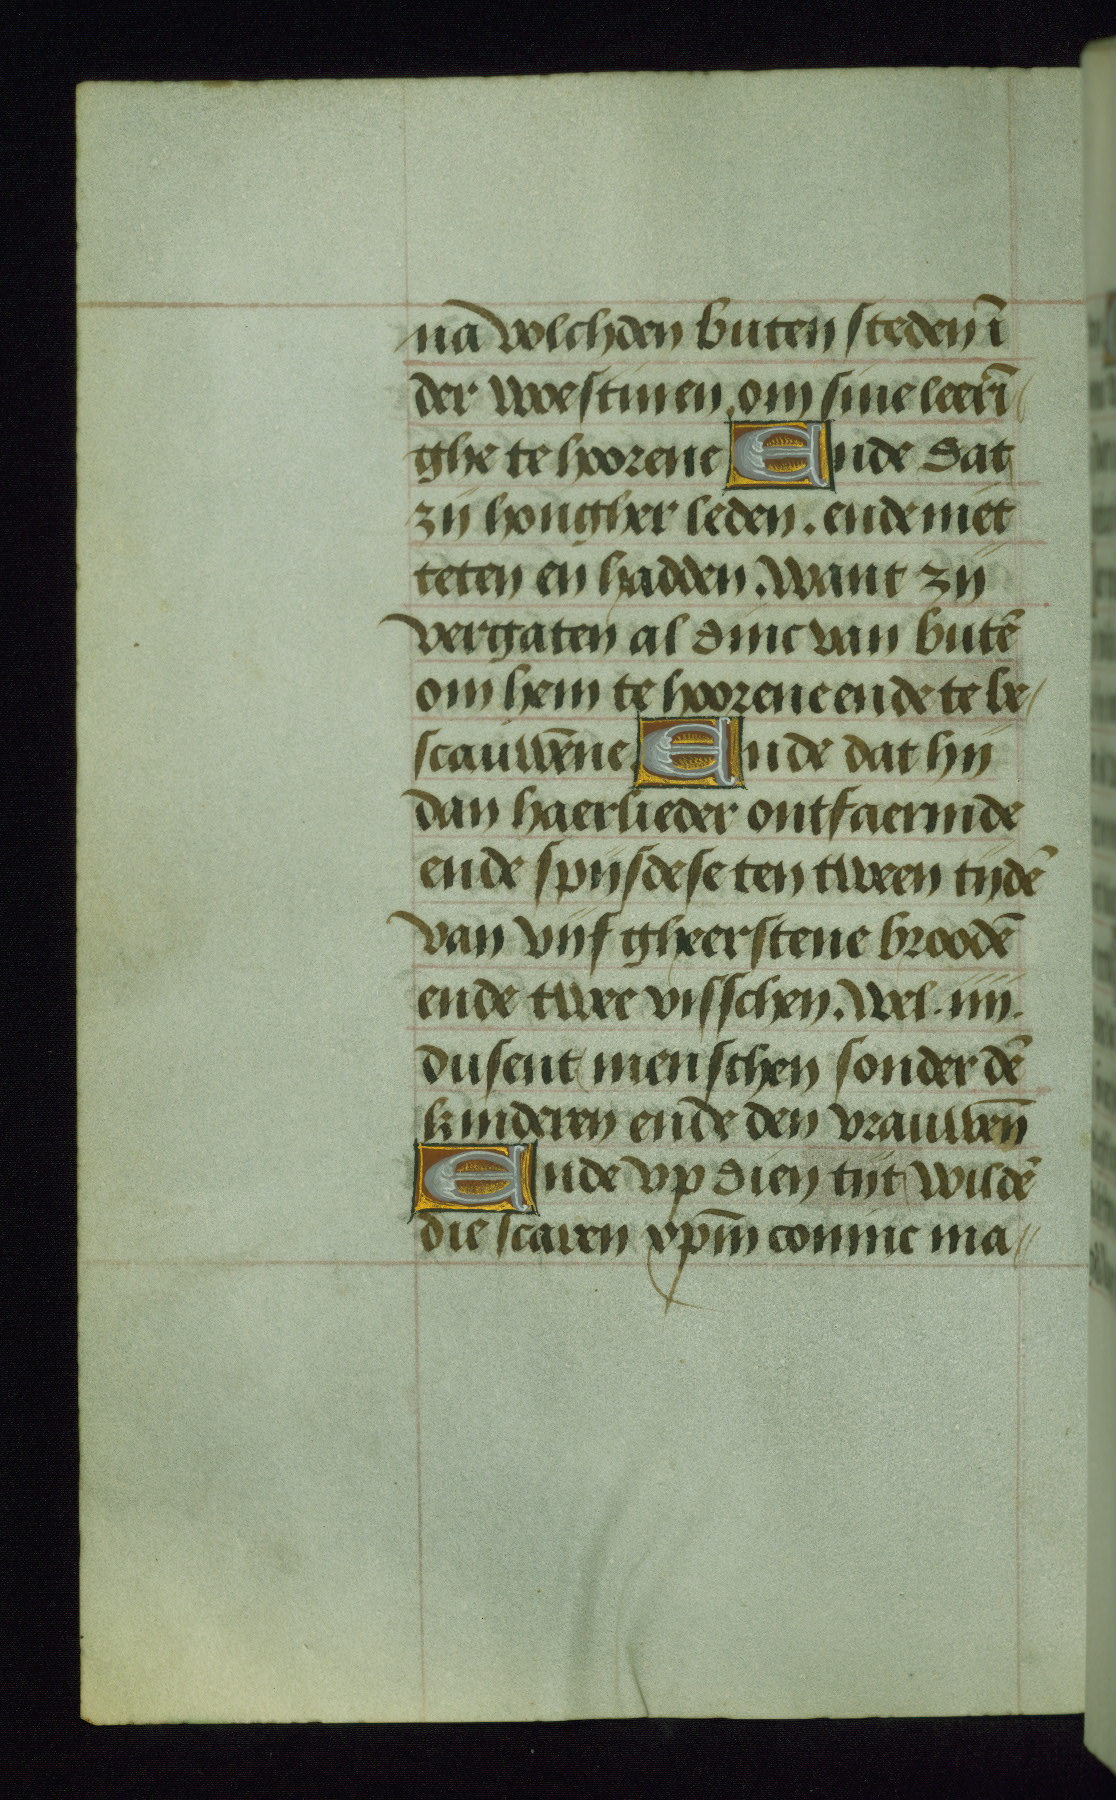 na volchden buten steden ī
der woestinen om sine leerī
ghe te hoorene Ende dat
zij hongher leden. ende niet
teten en hadden. Want zij
vergaten al dinc van butē
om hem te hoorene ende te be
scauwēne Ende dat hij
dan haerlieder ontfaermde
ende spijsdese ten tween tijdē
van vijf gheerstene broodē
ende twee visschen. Wel .iiii.
dusent menschen sonder dē
kinderen ende den vrauwēn
Ende vp dien tijt wildē
die scaren vpm̄ coninc ma